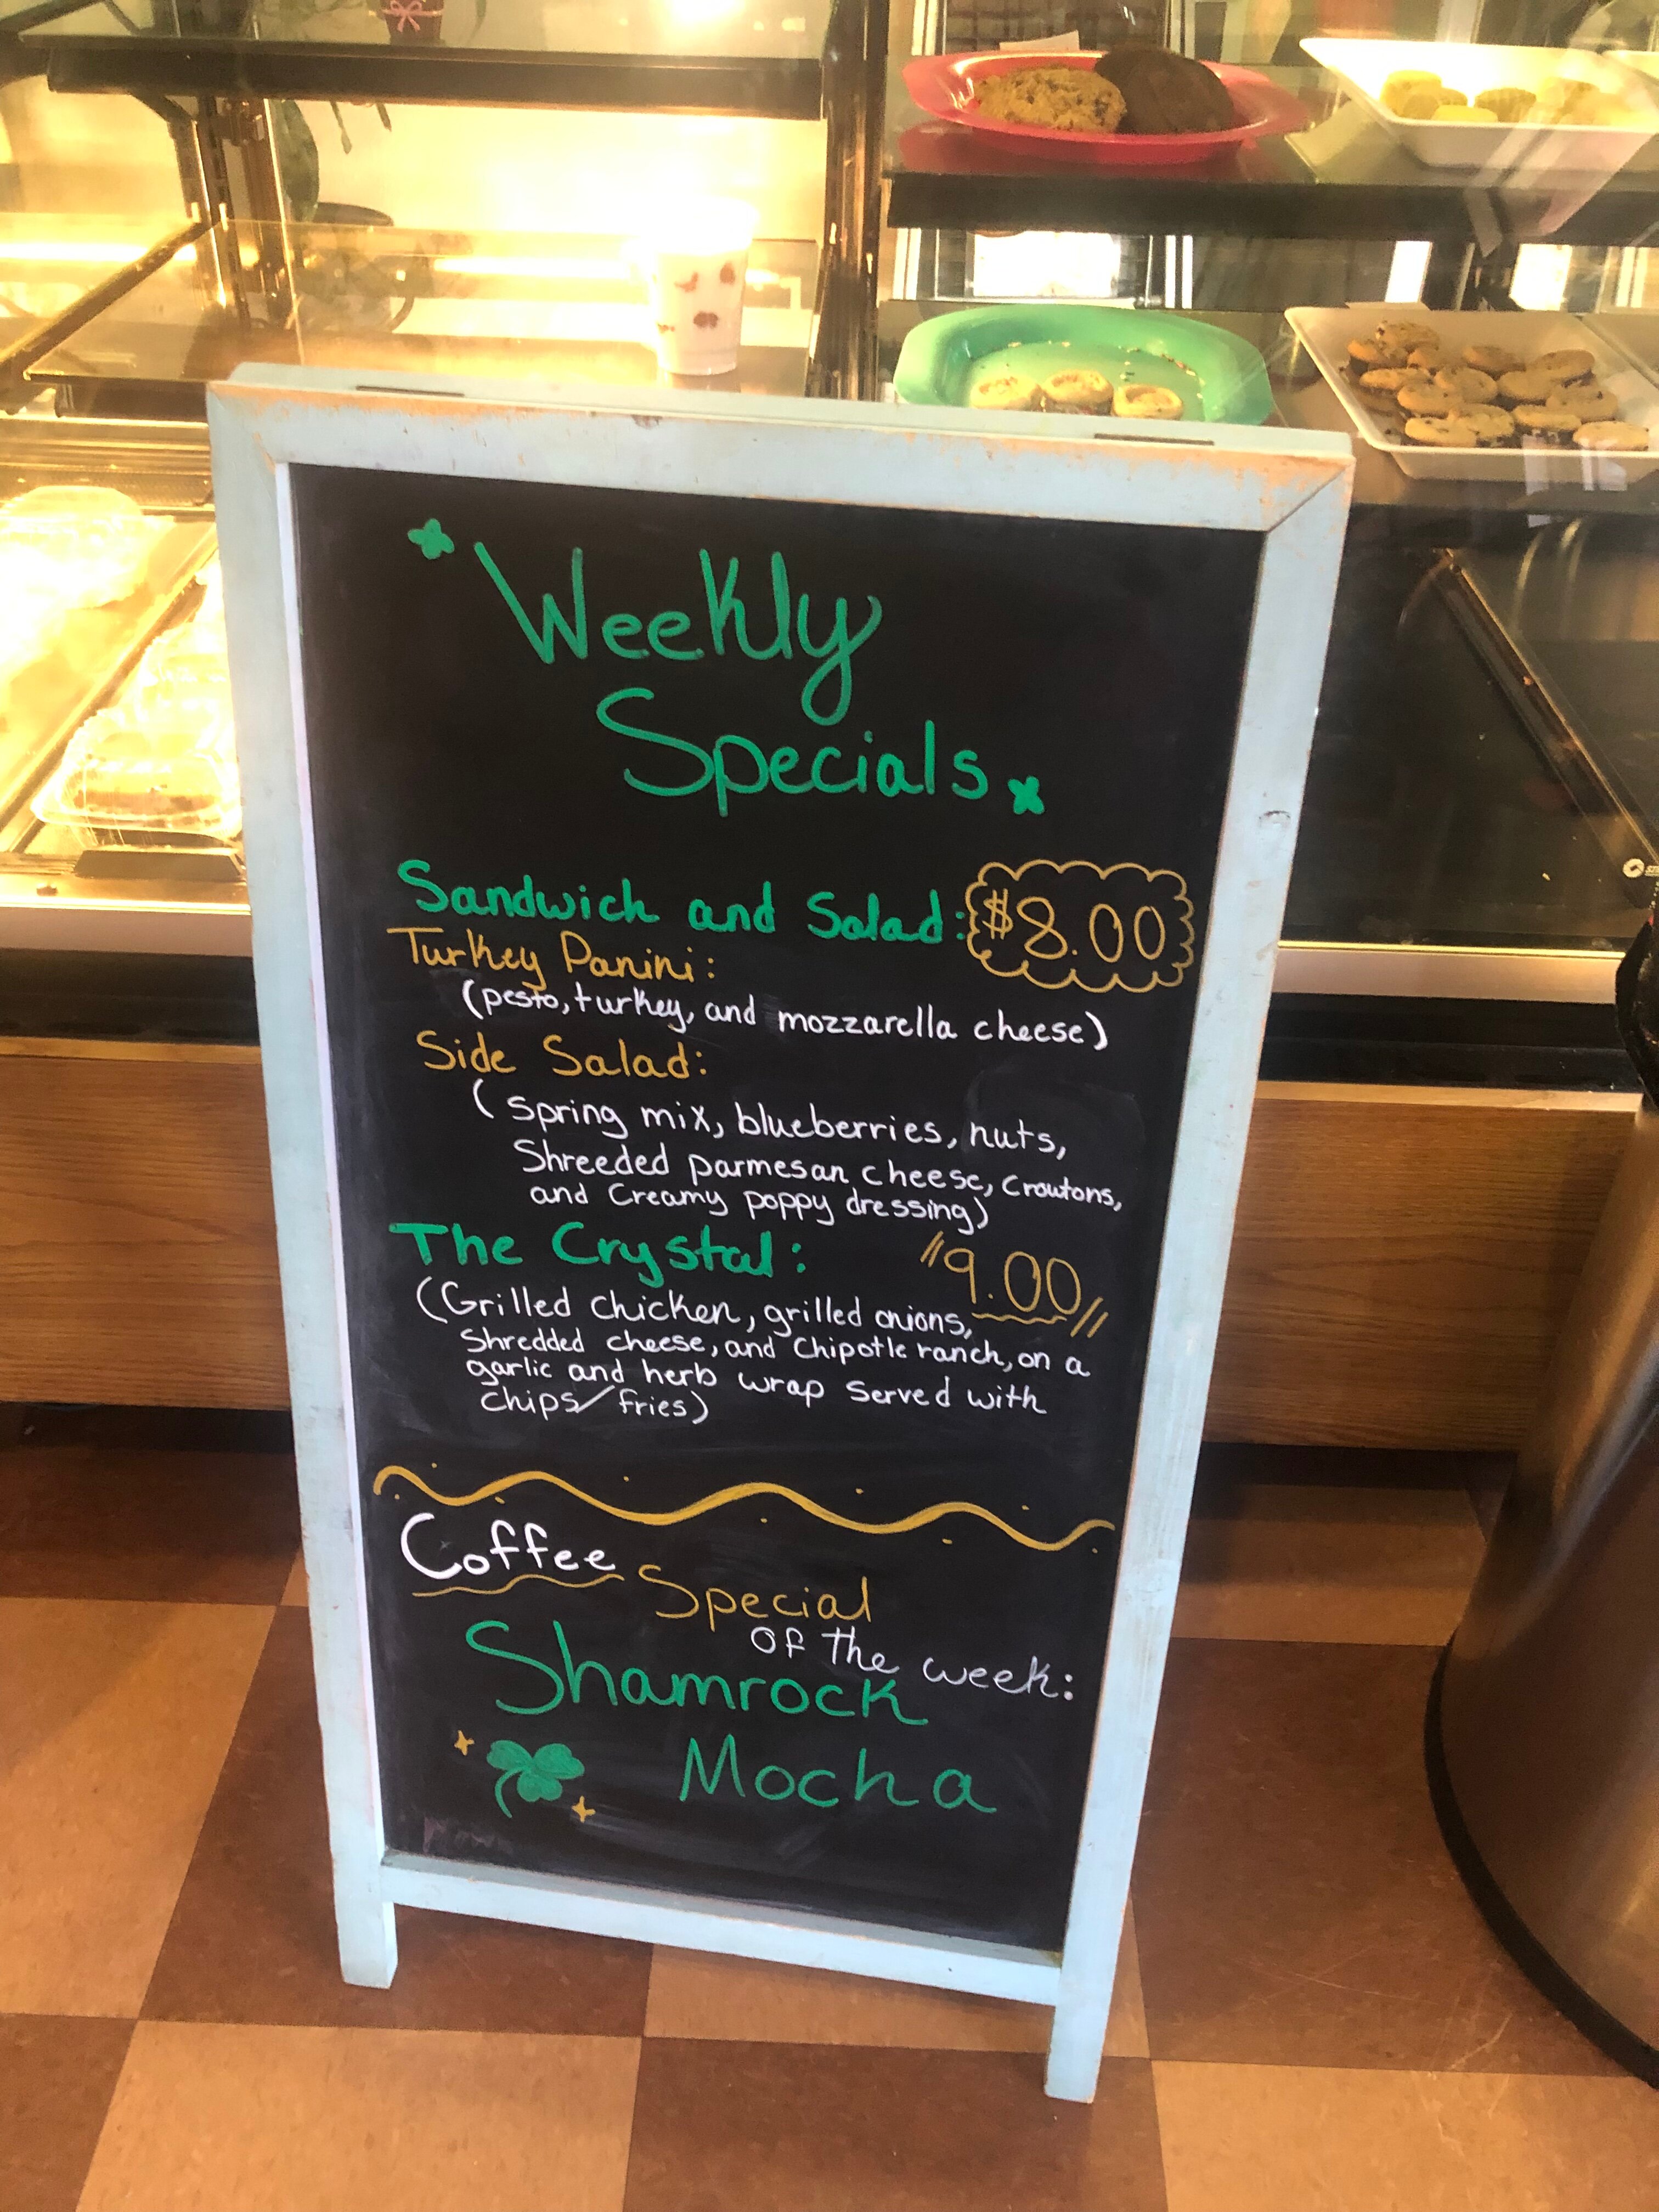 Weekly
Specials
Sandwich and Salad: $8.00
Turkey Panini:
(pesto, turkey, and mozzarella cheese)
Side Salad:
(spring mix, blueberries, nuts,
Shreeded parmesan cheese, croutons,
and Creamy poppy dressing)
The Crystal: 9.00
(Grilled chicken, grilled onions,
Shredded cheese, and Chipotle ranch, on a
garlic and herb wrap served with
chips/fries)
Coffee Special
Of the week:
Shamrock
Mocha